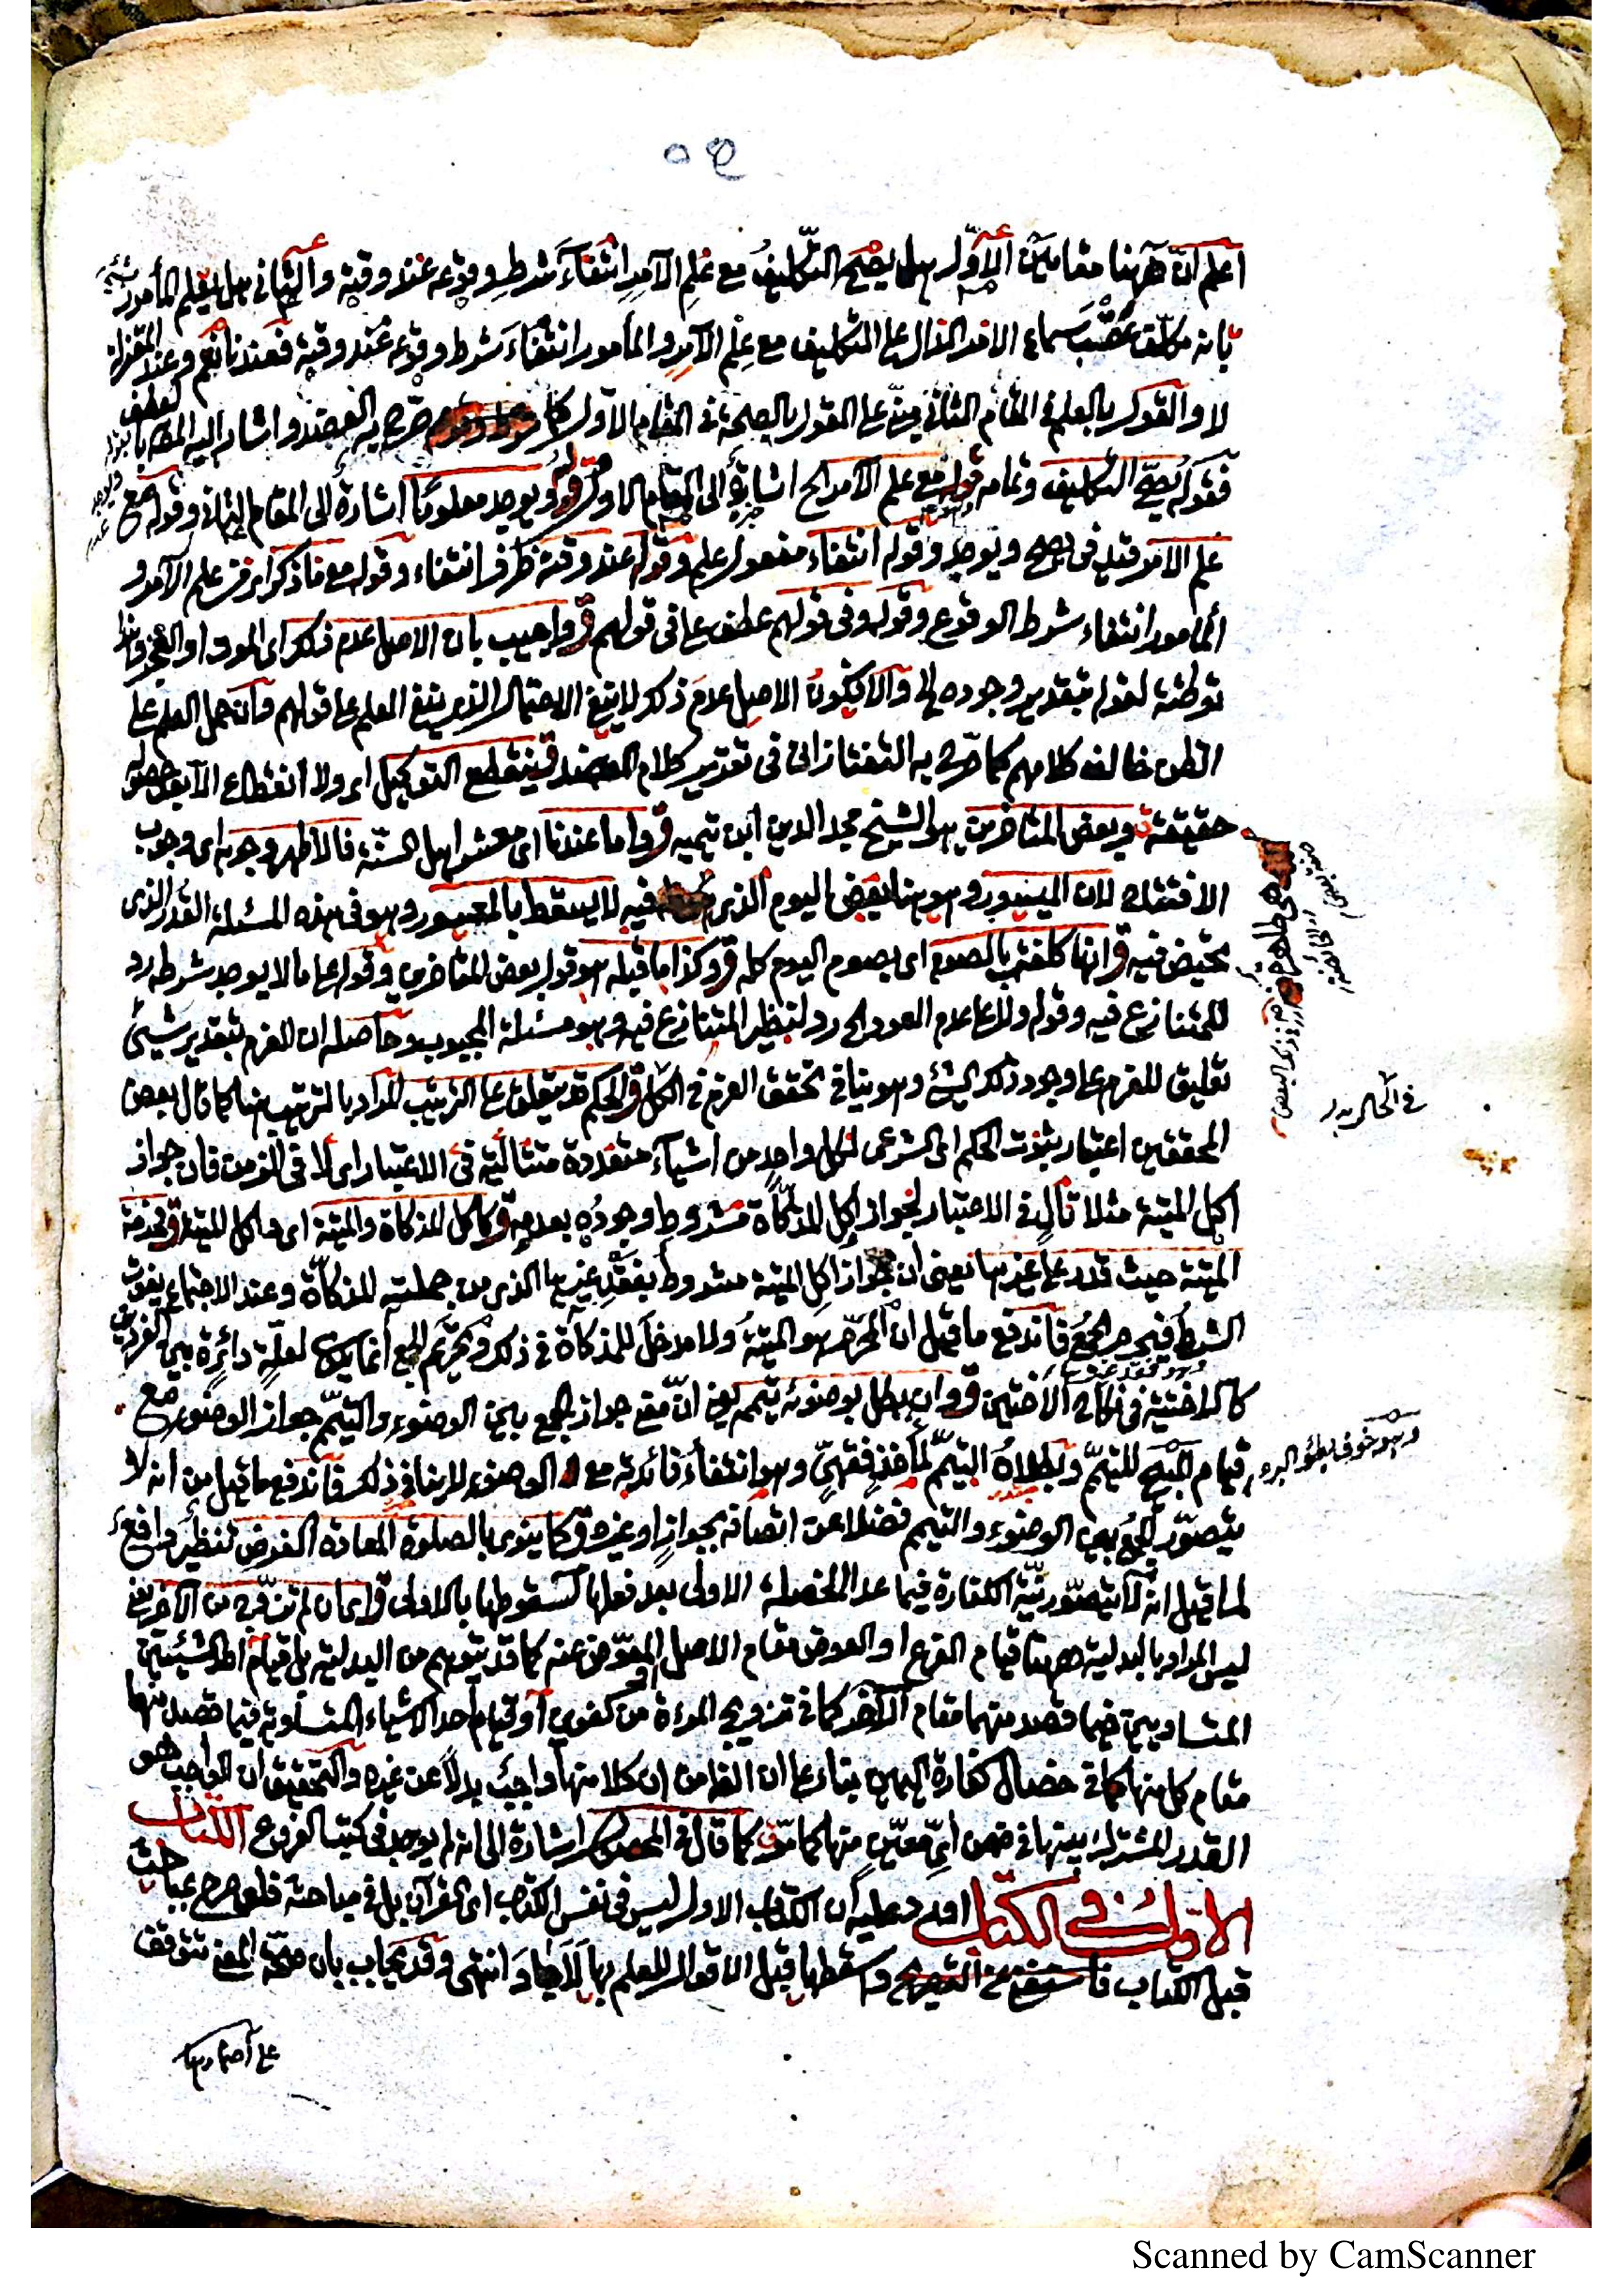 ٥٤
اعلم انّ ههنا مقامين الاوّل هل يصح التكليف مع علم الآمر انتفاء شرط وقوعه عند وقته والثاني هل يعلم المأمور
بانه مكلف عقب سماع الامر الدال على التكليف مع علم الآمر والمأمور انتفاء شرط وقوعه عند وقته فعندنا نعم وعند المعتزلة
لا والقول بالعلم في المقام الثاني مبنى على القول بالصحة في المقام الاول كما صرّح به العضد واشار اليه المص
فقوله يصح التكليف وتمامه قوله مع علم الآمر الخ اشارة الى المقام الاول قوله ويوجد معلوما اشارة الى المقام الثاني وقوله مع
علم الآمر قيد في يصح ويوجد وقوله انتفاء مفعول علم وقوله عند وقته ظرف انتفاء وقوله مع ما ذكر اى من علم الآمر و
المأمور انتفاء شرط الوقوع وقوله وفى قولهم عطف على فى قولهم ق واجيب بان الاصل عدم ذلك اى الموت او العجز
توطئة لقوله فبتقدير وجوده الخ والا فيكون الاصل عدم ذلك لا ينفى الاحتمال الذى ينفى العلم على قولهم وان حمل العلم على
الظن خالف كلامهم كما صرّح به التفتازانى فى تقدير كلام العضد فينقطع التوكيل اى ولا انقطاع الا بعد حصوله
حقيقة وبعض المتأخرين هو الشيخ مجد الدين ابن تيميه ق واما عندنا اى معشر اهل السنة فالاظهر وجوبه اى وجوب
الافتتاح لان الميسور وهو هنا بعض اليوم الذى فيه لا يسقط بالمعسور وهو فى هذه المسئلة القدر الذى
تحيض فيه ق انها كلفت بالصوم اى بصوم اليوم كله ق وكذا ما قبله هو قول بعض المتأخرين وقوله على ما لا يوجد شرطه رد
للمتنازع فيه وقوله ولا على عدم العود الخ رد لنظير المتنازع فيه وهو مسئلة المجبوب وحاصله ان العزم بتقدير شيئ
تعليق للعزم على وجود ذلك الشئ وهو ينافى تحقق العزم فى الكل ق الحكم قد يتعلق على الترتيب المراد بالترتيب هنا كما قال بعض
المحققين اعتبار ثبوت الحكم اى الشرعى لكل واحد من اشياء متعددة متتالية فى الاعتبار اى لا فى الزمن فان جواز
اكل الميتة مثلا تال فى الاعتبار لجواز اكل المذكاة مشروط وجوده بعدمه ق كاكل المذكاة والميتة اى واكل الميتة ق فحرمة
الميتة حيث قدر على غيرها يعنى ان جواز اكل الميتة مشروط بفقد غيرها الذى من جملته المذكاة وعند الاجتماع يفوت
الشرط فيحرم الجمع فاندفع ما قيل ان المحرّم هو الميتة ولا مدخل للمذكاة فى ذلك وتحريم الجمع انما يكون لعلّة دائرة بين الفردين
كالاختية فى نكاح الاختين ق وان بطل بوضوئه تيممه يعنى انّ معنى جواز الجمع بين الوضوء والتيمّم جواز الوضوء مع
قيام المبيح للتيمّم وبطلان التيمّم لمأخذ فقهىّ وهو انتفاء فائدته مع الوضوء لا ينافى ذلك فاندفع ما قيل من انه لا
يتصوّر الجمع بين الوضوء والتيمم فضلا عن اتصافه بجواز او غيره ق كما ينوى بالصلوة المعادة الفرض تنظير دافع
لما قيل انه لا يتصوّر نيّة الكفارة فيما عدا الخصلة الاولى بعد فعلها لسقوطها بالاولى ق
ليس المراد بالبدلية ههنا قيام الفرع او العوض مقام الاصل المعوّض عنه كما قد يتوهم من البدلية بل قيام احد الشيئين
المتساويين فيما قصد منهما مقام الآخر كما فى تزويج المرءة من كفوين او قيام احد الاشياء المتساوية فيما قصد منها
مقام كل منها كما فى خصال كفارة اليمين بناء على ان كلا منها واجب بدلاً عن غيره والتحقيق ان الواجب هو
القدر المشترك بينها فى ضمن اىّ معيّن منها كما مرّ ق كما قال فى المحصول اشارة الى انه لم يوجد فى كتب الفروع الكتاب
الاول فى الكتاب اورد عليه ان الكتاب الاول ليس فى نفس الكتاب اى القرآن بل فى مباحثه فلعله صرح بمباحث
قبل الكتاب فاستغنى عن التصريح واسقطها قبل الاقوال للعلم بها انتهى وقد يجاب بان صحّة المعنى تتوقف
فى الحال بدر